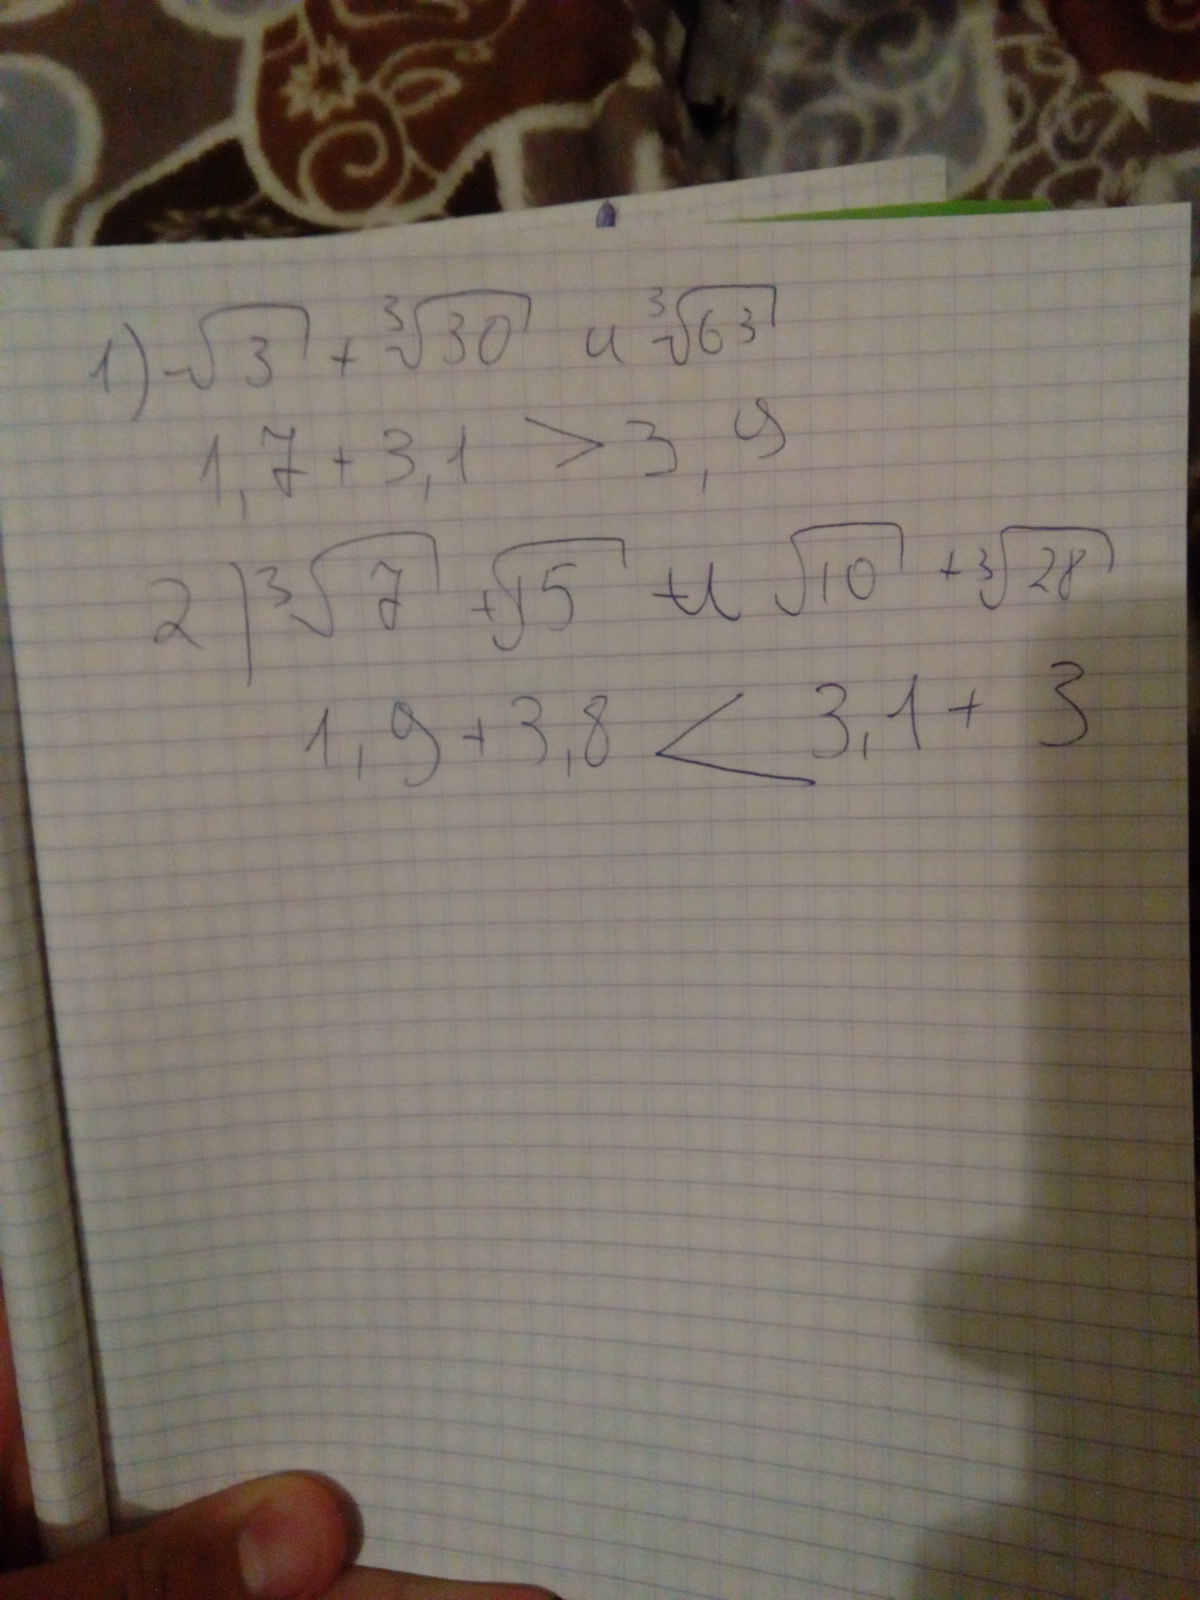 1) √3 + ∛30 и ∛63
1,7 + 3,1 > 3,9
2) ∛7 + √15 и √10 + ∛28
1,9 + 3,8 < 3,1 + 3